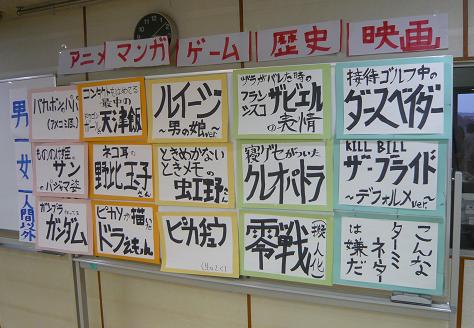 アニメ マンガ ゲーム 歴史 映画
男 女 人間外
バカボンのパパ
コンタクトを止めてる
最中の
天津飯
ルイージ
～男の娘ver.～
ヅラがバレた時の
フランシスコ
ザビエル
の表情
接待ゴルフ中の
ダースベイダー
もののけ姫の
サン
のパジャマ姿
ネコ耳の
野比玉子
さん
ときめかない
ときメモの
虹野さん
寝グセがついた
クレオパトラ
KILL BILL
ザ・ブライド
～デフォルメver.～
ガンプラ作ってる
ガンダム
ピカソが描いた
ドラえもん
ピカチュウ
零戦
(擬人化)
こんな
ターミネーター
は嫌だ